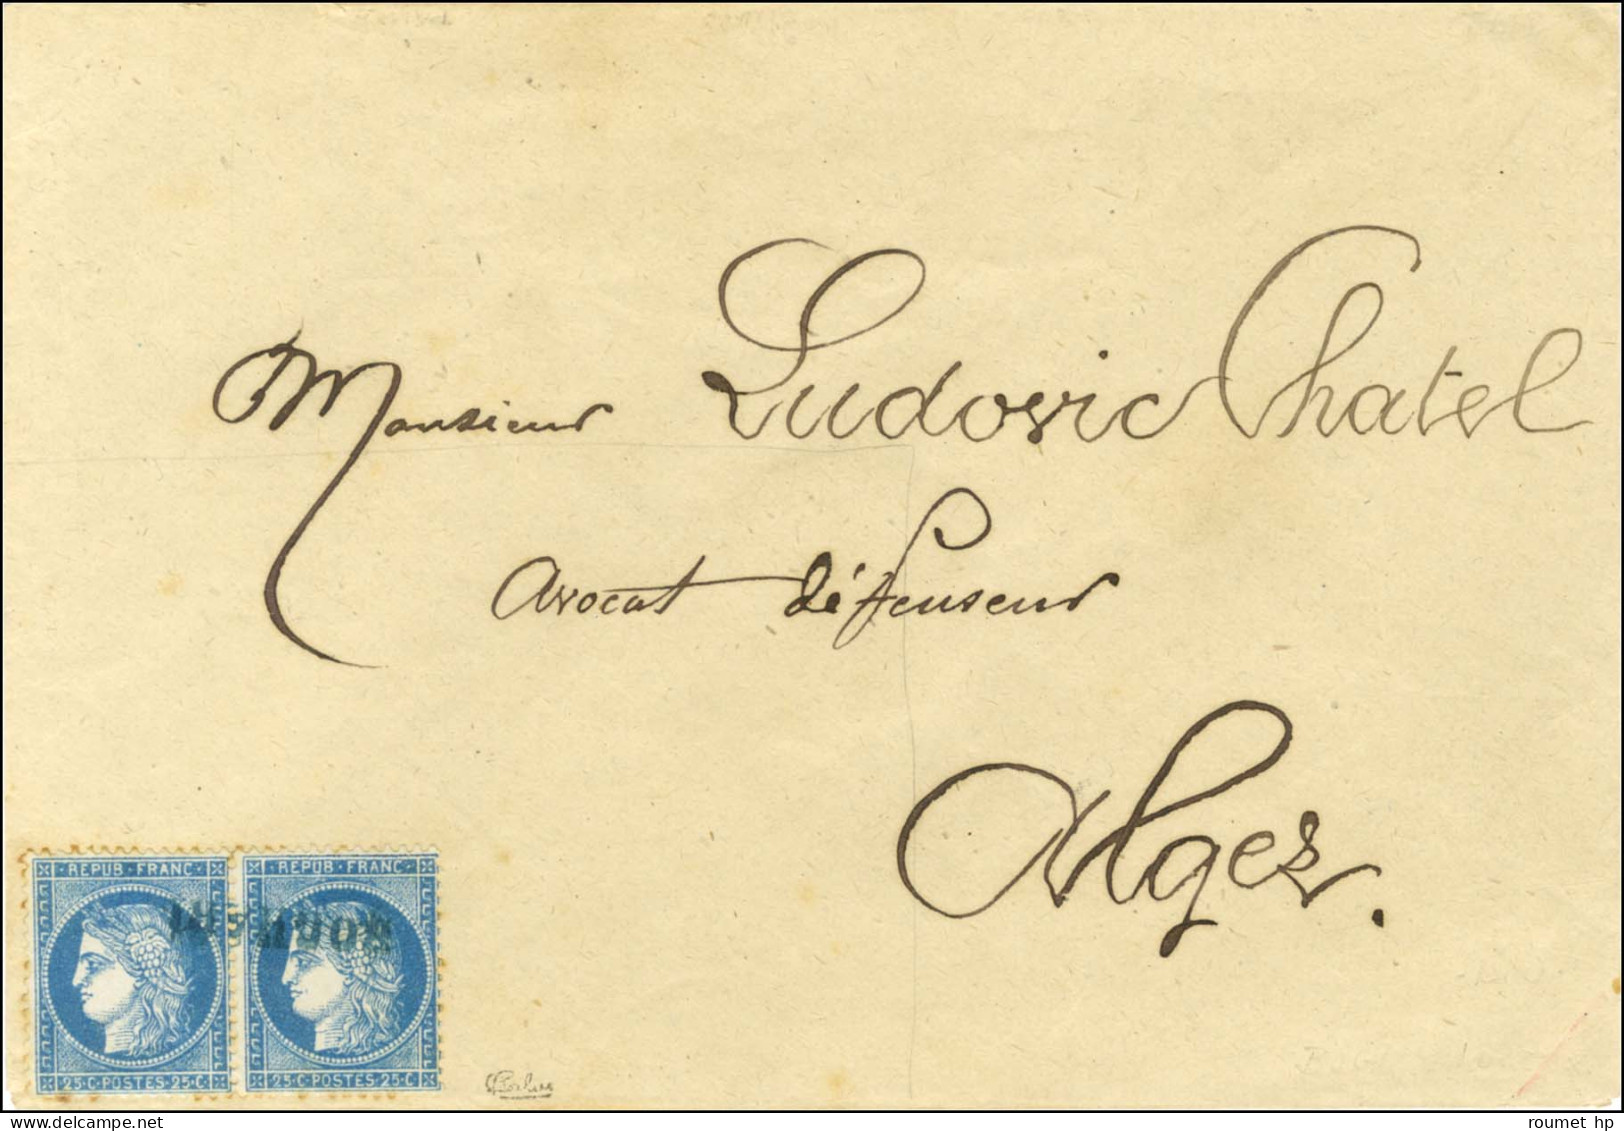 Monsieur Ludovic Chatel
Avocat défenseur
Alger.
· REPUB · FRANC ·
· REPUB · FRANC ·
25·C·POSTES·25·C·
25·C·POSTES·25·C·
www.delcampe.net
roumet hp